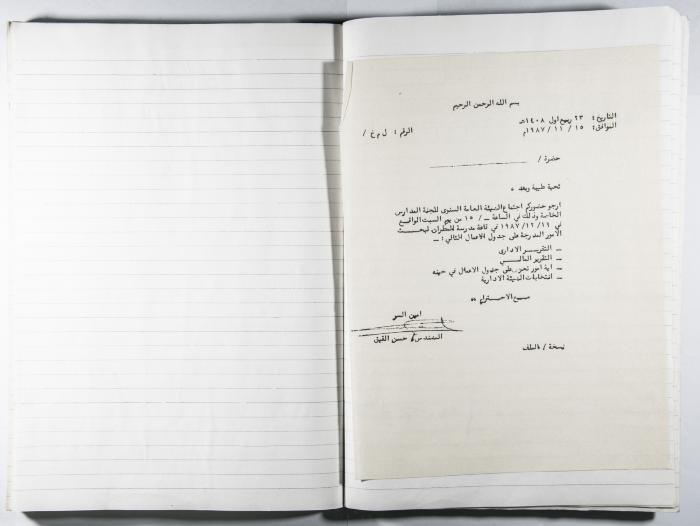 بسم الله الرحمن الرحيم
التاريخ : ٢٣ ربيع اول ١٤٠٨هـ
الموافق : ١٥ / ١١ / ١٩٨٧م الرقم : ل م خ /
حضرة /
تحية طيبة وبعد ،
ارجو حضوركم اجتماع الهيئة العامة السنوى للجنة المدارس
الخاصة وذلك في الساعة ــ / ١٥ من يوم السبت الواقع
في ١٩٨٧/١٢/١٢ في قاعة مدرسة المطران لبحث
الامور المدرجة على جدول الاعمال التالي : ــ
ــ التقرير الادارى
ــ التقرير المالي
ــ اية امور على جدول الاعمال في حينه
ــ انتخابات الهيئة الادارية
مع الاحترام ،،
امين السر
المهندس حسن القيق
نسخة / الملف